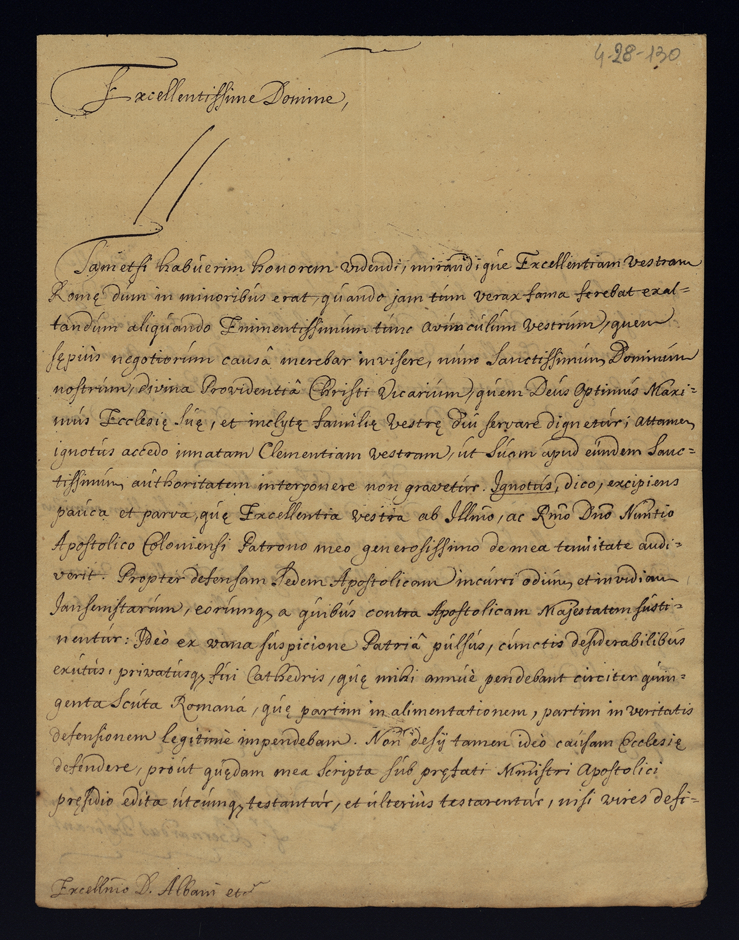 4-28-130
Excellentissime Domine,
Tametsi habuerim honorem videndi, mirandique Excellentiam vestram
Romę dum in minoribus erat, quando jam tum verax fama ferebat exal=
tandum aliquando Eminentissimum tunc avunculum vestrum, quem
sępius negotiorum causâ merebar invisere, nunc Sanctissimum Dominum
nostrum, divina Providentiâ Christi Vicarium, quem Deus Optimus Maxi=
mus Ecclesię Suę, et inclytę familię vestrę diu servare dignetur; attamen
ignotus accedo innatam Clementiam vestram, ut Suam apud eundem Sanc=
tissimum authoritatem interponere non gravetur. Ignotus, dico, excipiens
pauca et parva, quę Excellentia vestra ab Illmo, ac Rmo Dno Nuntio
Apostolico Coloniensi Patrono meo generosissimo de mea tenuitate audi=
verit. Propter defensam Sedem Apostolicam incurri odium, et invidiam
Jansenistarum, eorumq, a quibus contra Apostolicam Majestatem susti=
nentur: Ideò ex vana suspicione Patriâ pulsus, cunctis desiderabilibus
exutus, privatusq, fui Cathedris, quę mihi annuè pendebant circiter quin=
genta Scuta Romana, quę partim in alimentationem, partim in veritatis
defensionem legitimè impendebam. Non desij tamen ideò causam Ecclesię
defendere, proùt quędam mea Scripta sub pręfati Ministri Apostolici
pręsidio edita utcumq, testantur, et ulterius testarentur, nisi vires defi=
Excellmo D. Albani etc